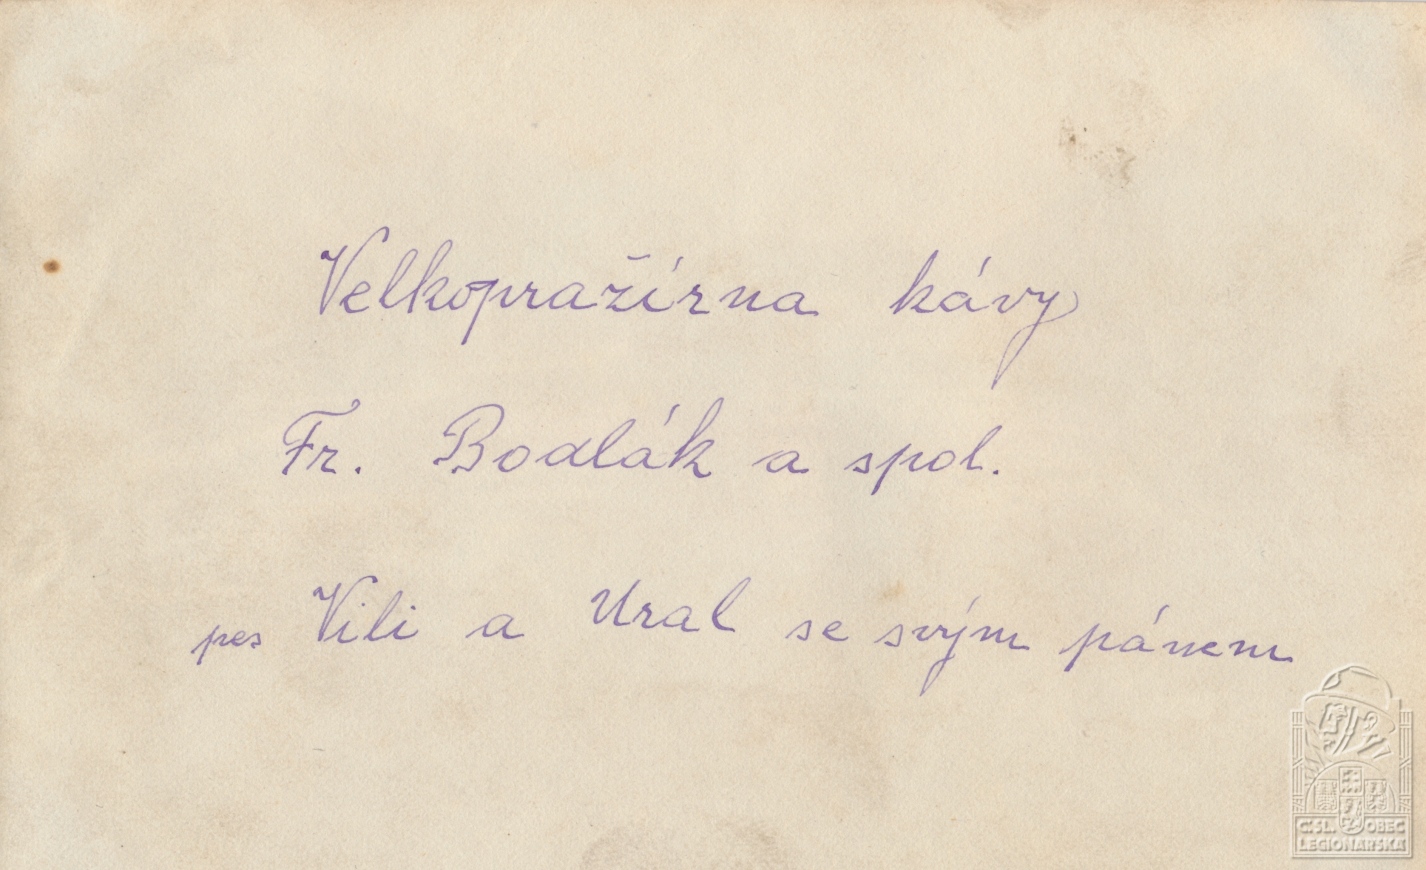 Velkopražírna kávy
Fr. Bodlák a spol.
pes Vili a Ural se svým pánem
ČSL. OBEC
LEGIONÁŘSKÁ